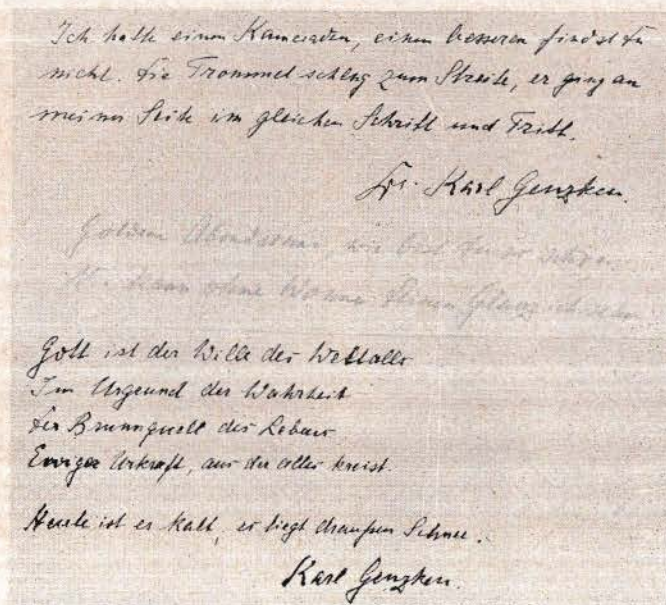 Ich hatte einen Kameraden, einen besseren findst Du
nicht. Die Trommel schlug zum Streite, er ging an
meiner Seite im gleichen Schritt und Tritt.
Dr. Karl Genzken.
Goldene Abendsonne, wie bist Du so schön.
Nie kann ohne Wonne Deinen Glanz ich sehn
Gott ist der Wille des Weltalls
Im Urgrund der Wahrheit
Der Brunnquell des Lebens
Ewiger Urkraft, aus der alles kreist.
Heute ist es kalt, es liegt draußen Schnee.
Karl Genzken.